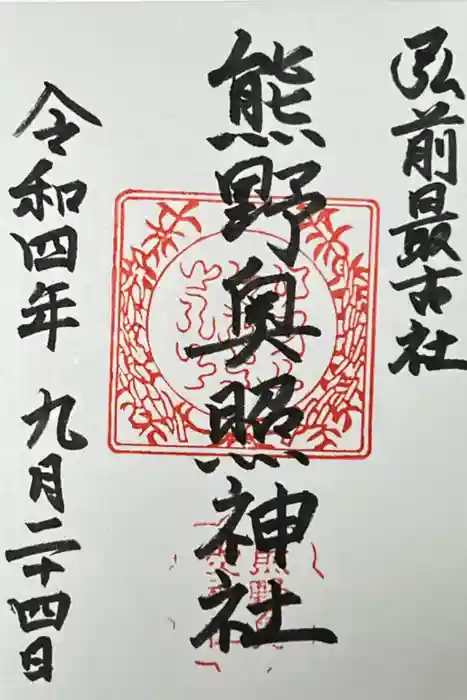 弘前最古社
熊野奥照神社
令和四年 九月二十四日